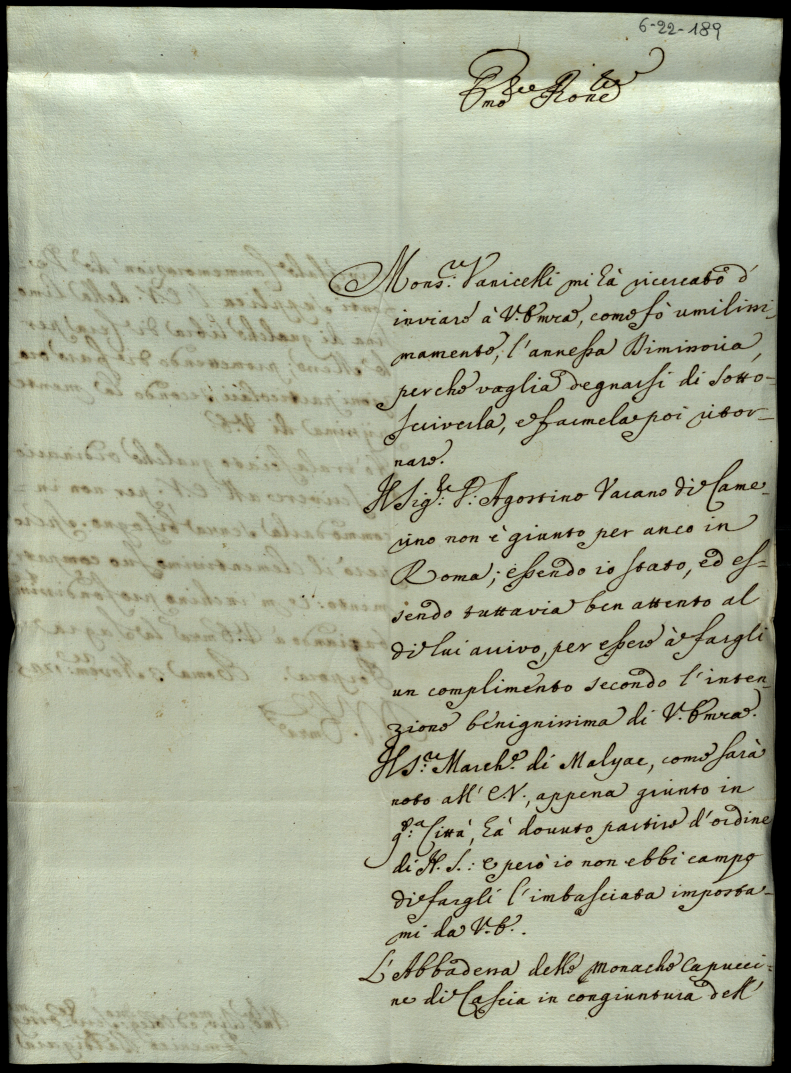 6-22-189
Emo e Rmo Prone
Mons.re Vanicelli mi hà ricercato d'
inviare à V. Emza, come fò umilissi-
mamente, l'annessa Dimissoria,
perche voglia degnarsi di sotto-
scriverla, e farmela poi ritor-
nare.
Il Sig.re P. Agostino Varano di Came-
rino non è giunto per anco in
Roma; essendo io stato, ed es-
sendo tuttavia ben attento al
di lui arrivo, per essere à fargli
un complimento secondo l'inten-
zione benignissima di V. Emza.
Il S.re March.e di Malyac, come sarà
noto all' E.V., appena giunto in
q.ta Città, hà dovuto partire d'ordine
di N. S.: e però io non ebbi campo
di fargli l'imbasciata imposta-
mi da V.E.
L'Abbadessa delle Monache Capucci-
ne di Cascia in congiuntura dell'